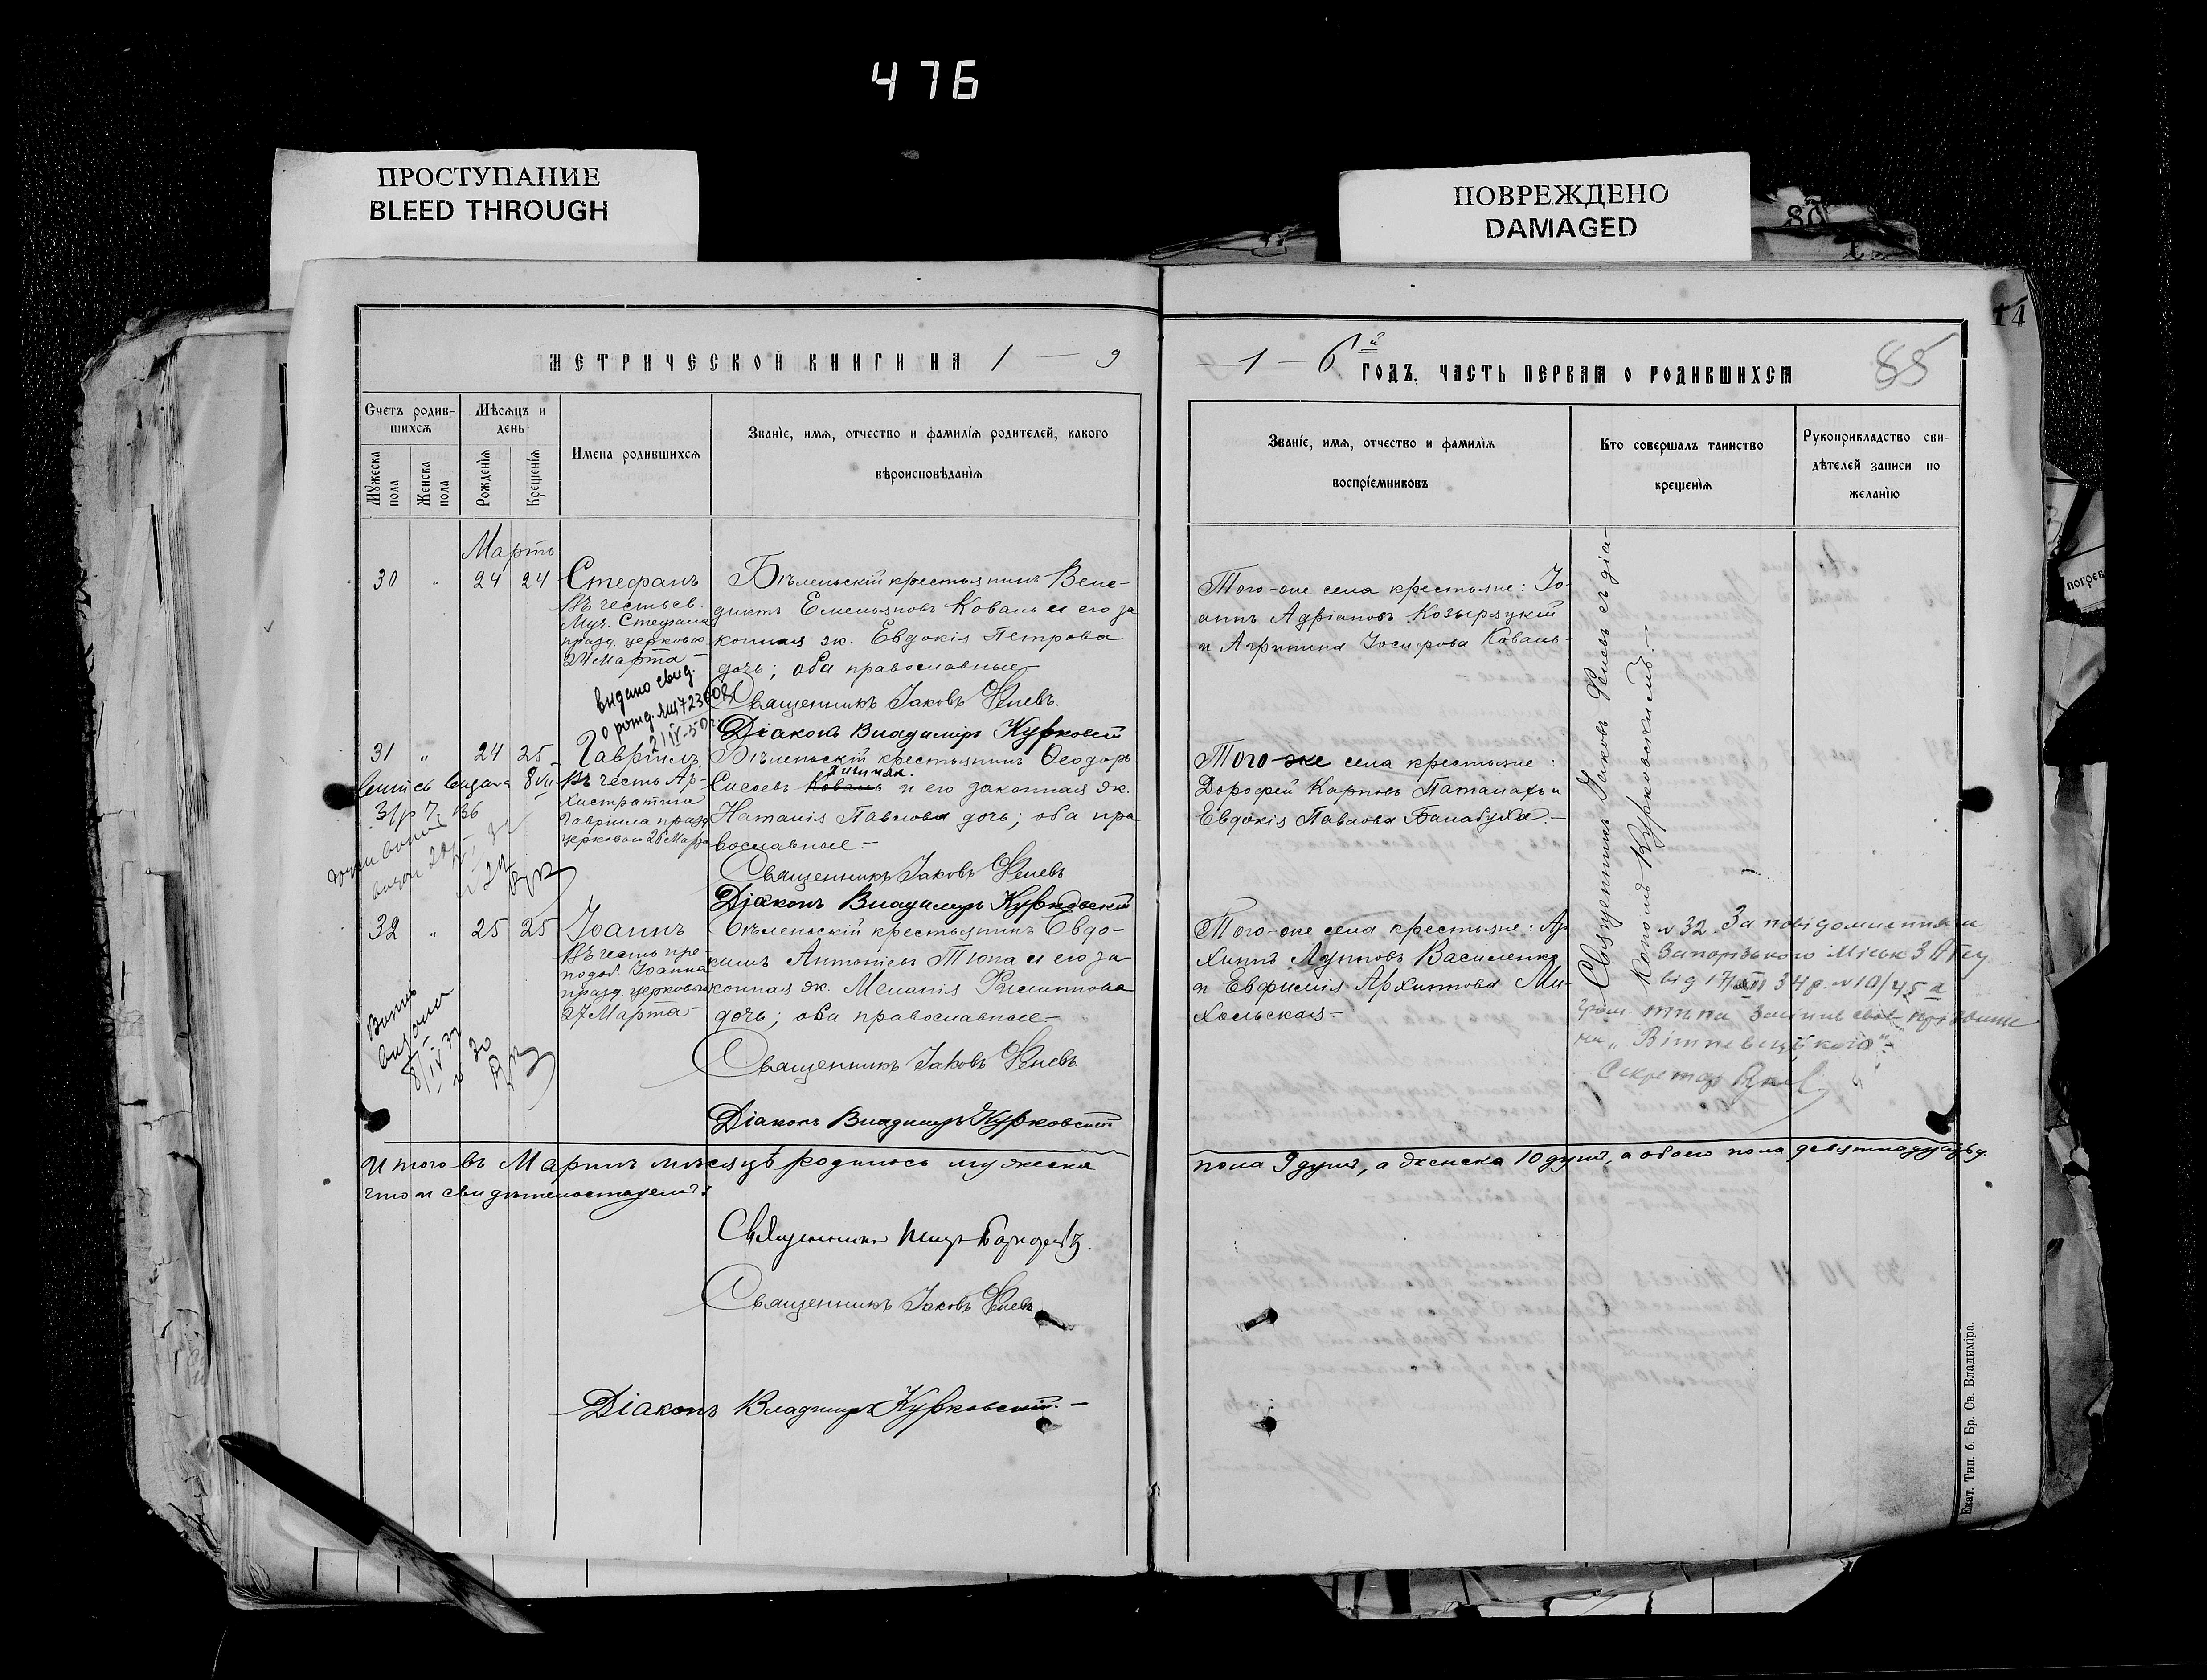 476
ПРОСТУПАНИЕ
BLEED THROUGH
ПОВРЕЖДЕНО
DAMAGED
80
погреб
14
85
МЕТРИЧЕСКОЙ КНИГИ НА 1 — 9
— 1 — 6й ГОДЪ. ЧАСТЬ ПЕРВАЯ О РОДИВШИХСЯ
Счетъ родив-
шихся
Мужеска пола
Женска пола
Мѣсяцъ и
день
Рожденія
Крещенія
Имена родившихся
Званіе, имя, отчество и фамилія родителей, какого
вѣроисповѣданія
Званіе, имя, отчество и фамилія
воспріемниковъ
Кто совершалъ таинство
крещенія
Рукоприкладство сви-
дѣтелей записи по
желанію
Мартъ
30 " 24 24
Стефанъ
Въ честь св.
Муч. Стефана
празд. церковью
24 Марта —
Бѣленьскій крестьянинъ Вене-
диктъ Емельяновъ Коваль и его за
конная ж. Евдокія Петрова
дочь; оба православные —
Священникъ Іаковъ
Діаконъ Владиміръ Курковскій
видано свид.
о рожд.
Того-же села крестьяне: Іо-
аннъ Адріановъ Козырацкій
и Агрипина Іосифова Коваль —
31 " 24 25
Гавріилъ
Въ честь Ар-
хистратига
Гавріила празд
церковью 26 Марта
Бѣленьскій крестьянинъ Ѳеодоръ
Сисоевъ Коваль и его законная ж.
Наталія Павлова дочь; оба пра
вославные. —
Священникъ Іаковъ
Діаконъ Владиміръ Курковскій
Того-же села крестьяне:
Дорофей Карповъ Паталахъ и
Евдокія Павлова Балабуха. —
32 " 25 25
Іоаннъ
Въ честь пре-
подоб. Іоанна
празд. церковью
27 Марта —
Бѣленьскій крестьянинъ Евдо-
кимъ Антоніевъ Тюпа и его за
конная ж. Меланія Филиппова
дочь; оба православные —
Священникъ Іаковъ
Діаконъ Владиміръ Курковскій
Витяг
видано
8/IV 37
№ 30
Того-же села крестьяне: Ар-
хипъ Лупповъ Василенко
и Евфимія Архиппова Ми-
хольская —
Священникъ Іаковъ съ діа-
кономъ Курковскимъ. —
№ 32. За повідомленням
Запорізького міськ ЗАГСу
від 34 р. № 10/45
гром. Тюпа змінив своє прізвище
на „Вітневецького".
Секретар
Итого въ Мартѣ мѣсяцѣ родилось мужеска
пола 9 душъ, а женска 10 душъ, а обоего пола девятнадцать д.
что и свидѣтельствуемъ:
Священникъ
Священникъ Іаковъ
Діаконъ Владиміръ Курковскій. —
Екат. Тип. б. Бр. Св. Владиміра.